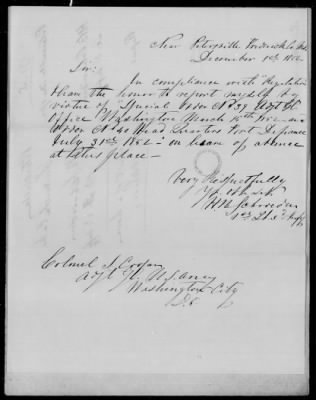 New Petersville Frederick Co Md.
December 1st 1852.
Sir:
In compliance with Regulation
I have the honor to report myself by
virtue of "Special Order No 39 Adjt Gl
Office Washington March 16th 1852" and
Order No 40 Head Quarters Fort Defiance
July 31st 1852 - on leave of absence
at this place -
Very Respectfully
Yr. Obt. Svt.
1st Lt 3d
Colonel S. Cooper
Adjt Gl. U. S. Army
Washington City
D.C.